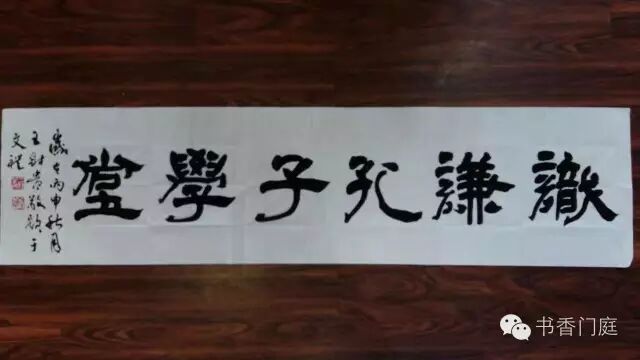 識謙孔子學堂
歲在丙申秋月
王財貴敬題于
文禮
书香门庭